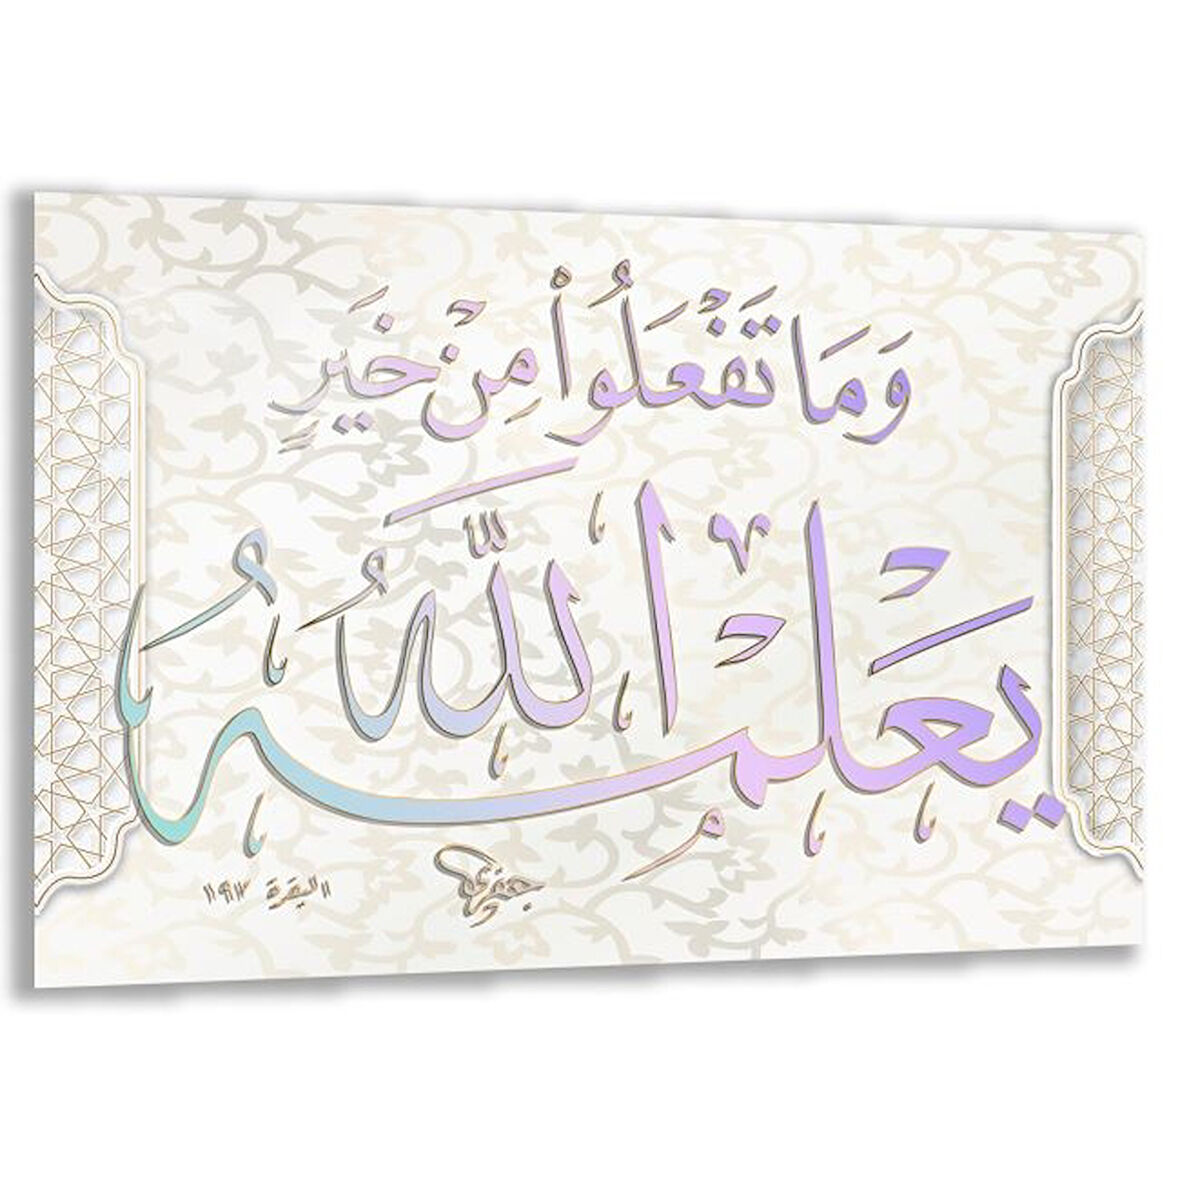 وَمَا تَفْعَلُواْ مِنْ خَيْرٍ
يَعْلَمْهُ اللَّهُ
البقرة